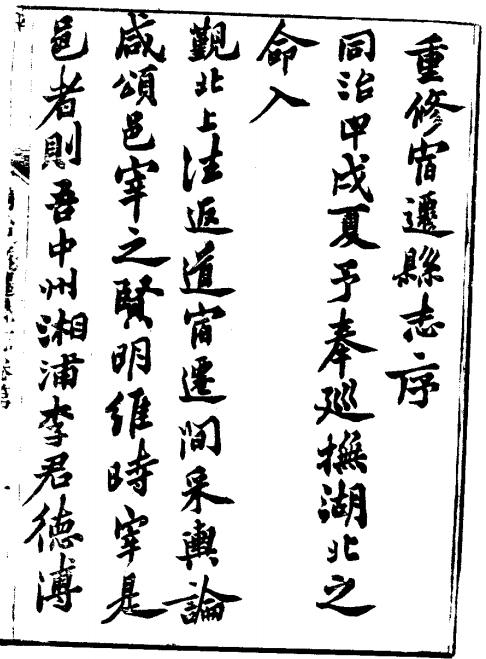 重修宿遷縣志序
同治甲戌夏予奉巡撫湖北之
命入
覲北上往返道宿遷間采輿論
咸頌邑宰之賢明維時宰是
邑者則吾中州湘浦李君德溥